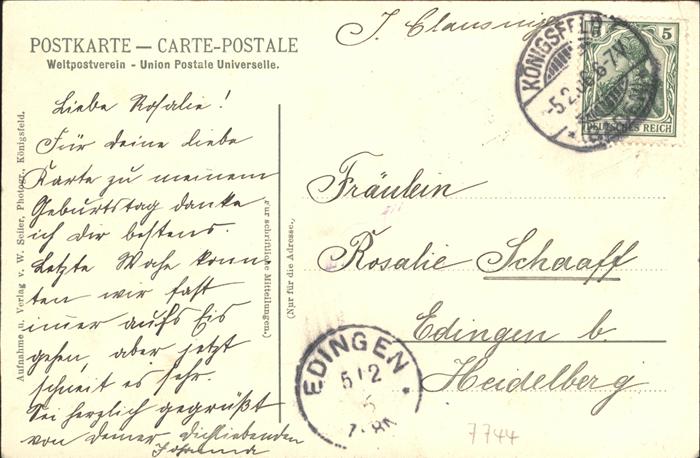 POSTKARTE — CARTE-POSTALE
Weltpostverein - Union Postale Universelle.
Liebe Rosalie!
Für deine liebe
Karte zu meinem
Geburtstag danke
ich Dir bestens.
Letzte Woche konn-
ten wir fast
immer aufs Eis
gehen, aber jetzt
schneit es sehr.
Sei herzlich gegrüßt
von deiner Dichliebenden
Johanna
Aufnahme u. Verlag v. W. Seiler, Photogr., Königsfeld.
(Nur für schriftliche Mitteilungen.)
(Nur für die Adresse.)
J.
KÖNIGSFELD
5.2. 6-7 N
5
DEUTSCHES REICH
Fräulein
Rosalie Schaaff
Edingen b.
Heidelberg
EDINGEN
5 2
7744